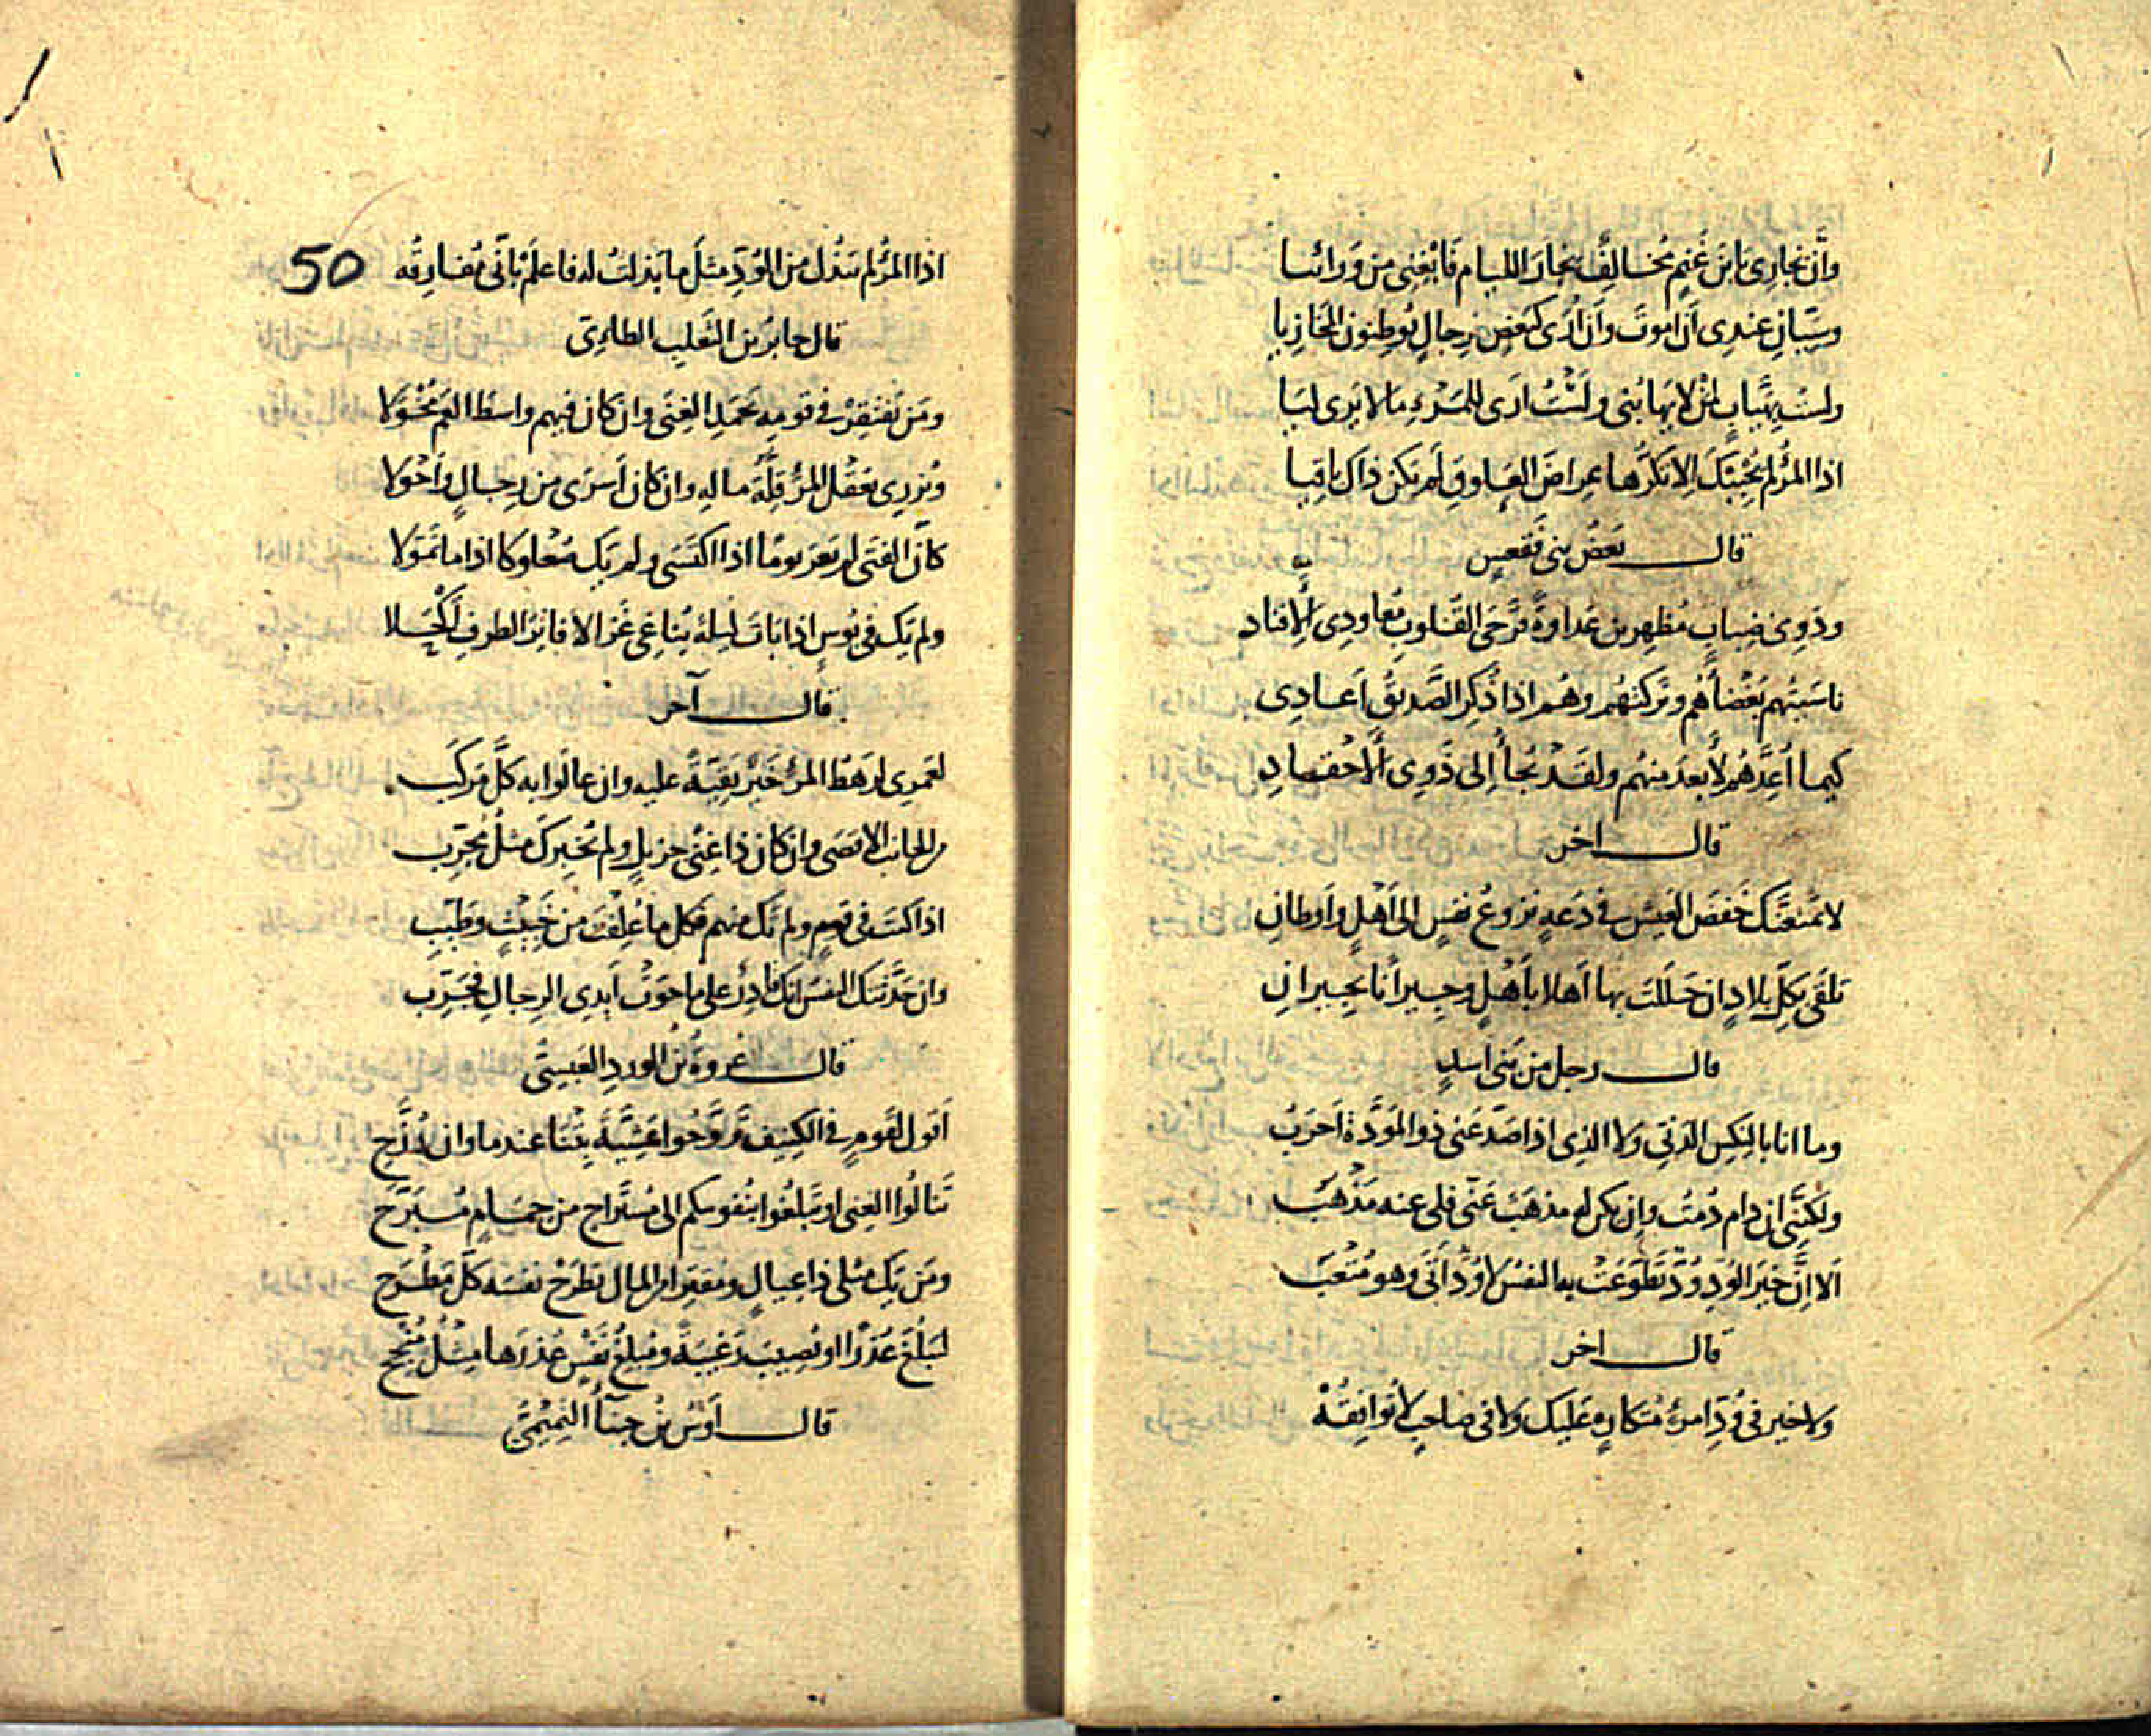 وأن نجاري يا بن غنم مخالف نجار اللئام فابغني من ورائيا
وسيان عندي أن أموت وأن أرى كبعض رجال يوطنون المخازيا
ولست بهياب لمن لا يهابني ولست أرى للمرء ما لا يرى ليا
اذا المرء لم يحببك الا تكرها عراض العلوق لم يكن ذاك باقيا
قال بعض بني فقعس
وذوي ضباب مظهرين عداوة قرحى القلوب معاودي الافناد
ناسيتهم بغضاءهم وتركتهم وهم اذا ذكر الصديق أعادي
كيما أعدهم لأبعد منهم ولقد يجاء إلى ذوي الأحقاد
قال اخر
لا يمنعنك خفض العيش في دعه نزوع نفس الى أهل وأوطان
تلقى بكل بلاد ان حللت بها أهلا بأهل وجيرانا بجيران
قال رجل من بني اسد
وما انا بالنكس الدني ولا الذي اذا صد عني ذو المودة أحرب
ولكنني ان دام دمت وإن يكن له مذهب عني فلي عنه مذهب
ألا إن خير الود ود تطوعت به النفس لا ود أتى وهو متعب
قال اخر
ولا خير في ود امرئ متكاره عليك ولا في صاحب لا توافقه
اذا المرء لم يبذل من الود مثل ما بذلت له فاعلم بأني مفارقه 50
قال جابر بن الثعلب الطاءي
ومن يفتقر في قومه يحمد الغنى وان كان فيهم واسط العم مخولا
ويزري بعقل المرء قلة ماله وان كان أسرى من رجال وأحولا
كأن الفتى لم يعر يوما اذا اكتسى ولم يك صعلوكا اذا ما تمولا
ولم يك في بوس اذا بات ليلة يناغي غزالا فاتر الطرف أكحلا
قال آخر
لعمري لرهط المرء خير بقية عليه وان عالوا به كل مركب
من الجانب الاقصى وان كان ذا غنى جزيل ولم يخبرك مثل مجرب
اذا كنت في قوم ولم تك منهم فكل ما علفت من خبيث وطيب
وان حدثتك النفس انك قادر على ما حوت أيدي الرجال فجرب
قال عروة بن الورد العبسي
أقول لقوم في الكنيف تروحوا عشية بتنا عند ماوان رزح
تنالوا الغنى او تبلغوا بنفوسكم الى مستراح من حمام مبرح
ومن يك مثلي ذا عيال ومقترا من المال يطرح نفسه كل مطرح
ليبلغ عذرا او يصيب رغيبة ومبلغ نفس عذرها مثل منجح
قال أوس بن حبناء التميمي